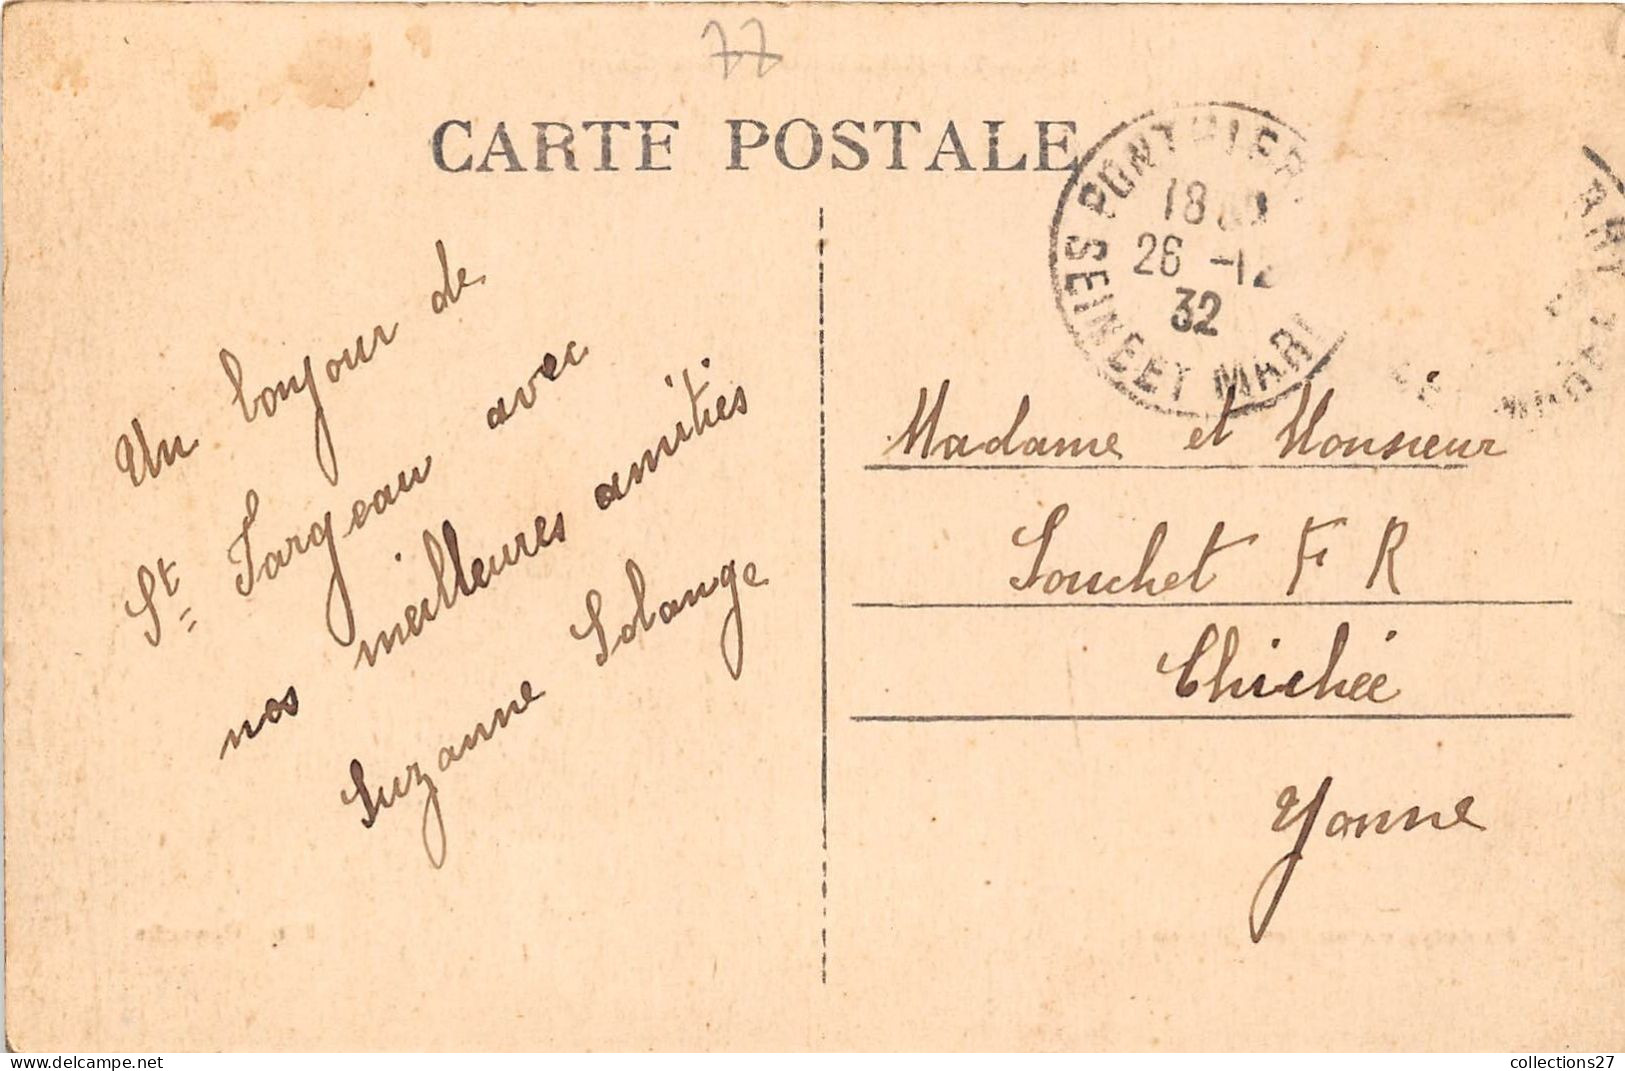 77
CARTE POSTALE
PONTHIER
18
26 -12
32
SEINE ET MAR
Un bonjour de
St Fargeau avec
nos meilleures amitiés
Suzanne Solange
Madame et Monsieur
Souchet F R
Chichée
Yonne
collections27